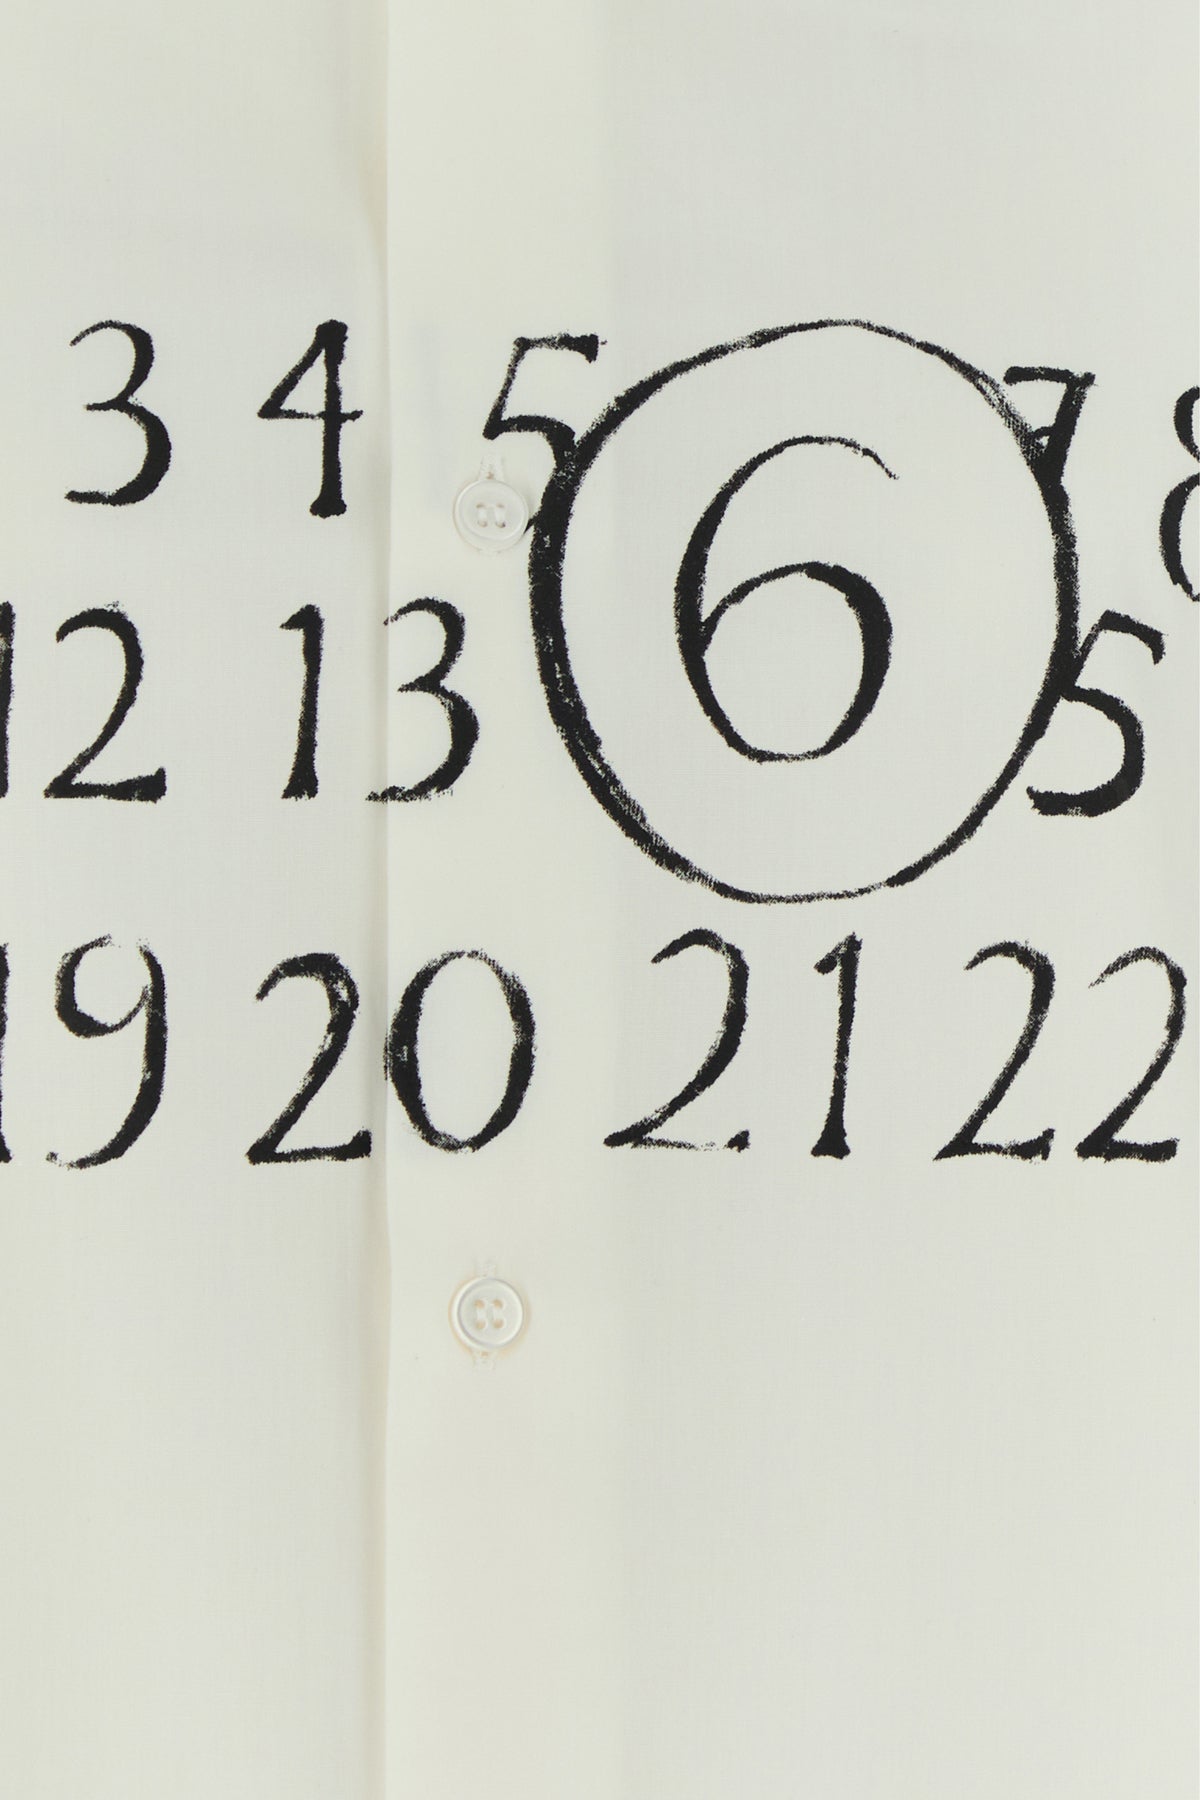 3 4 5 6 7 8
12 13 5
19 20 21 22